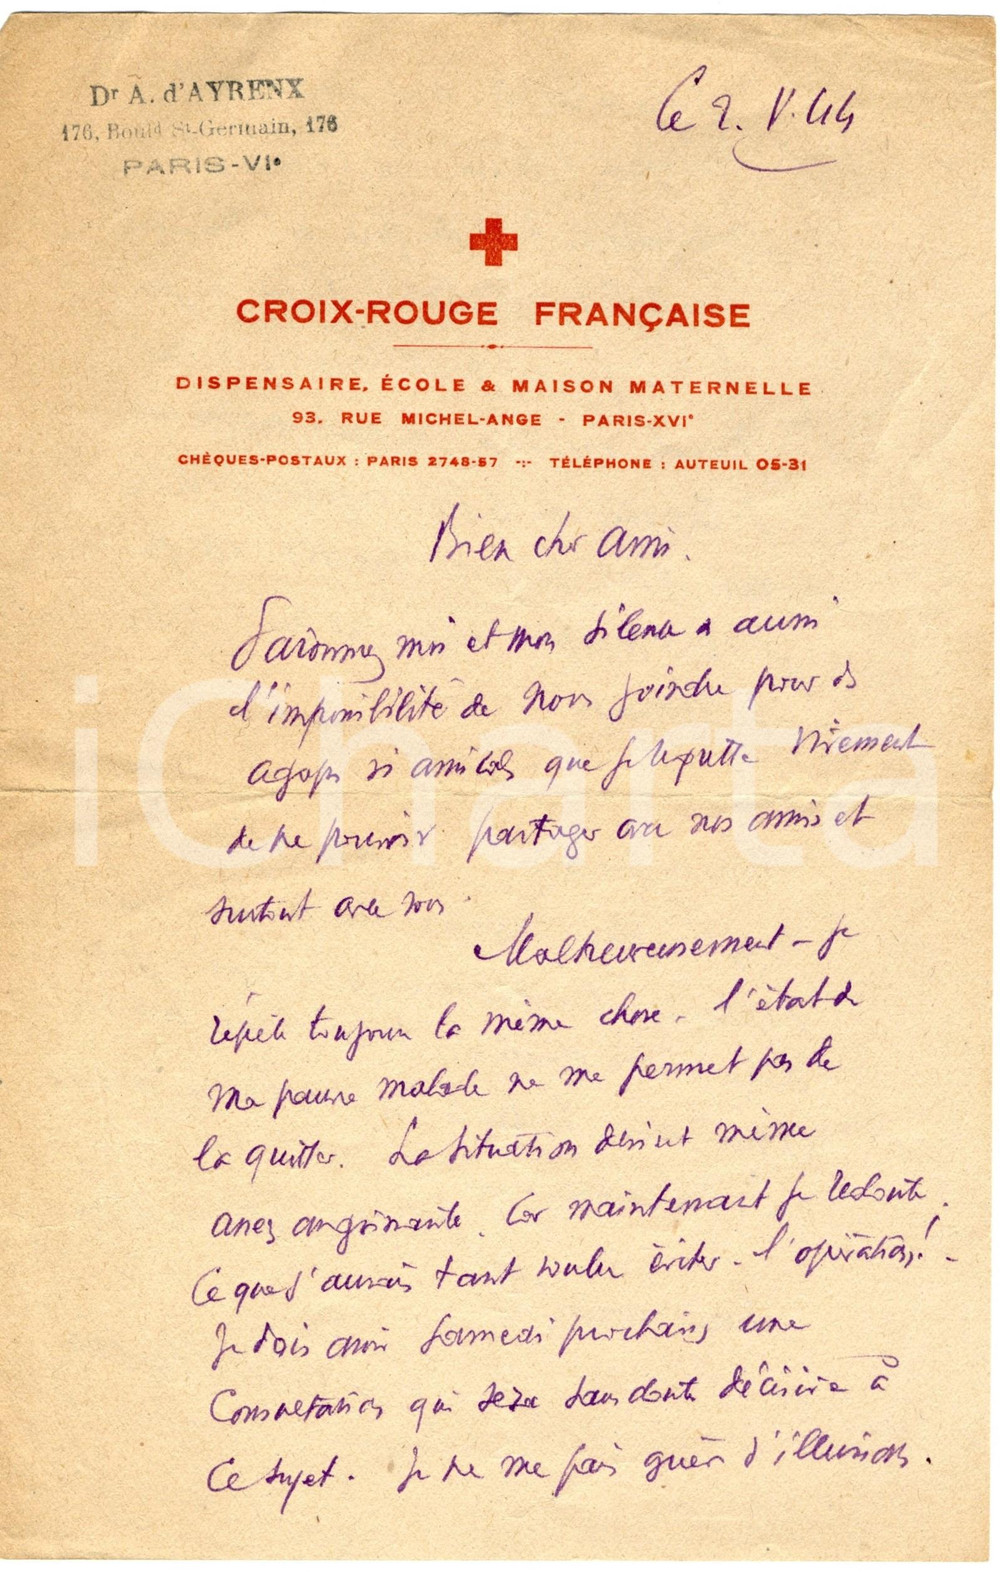 Dr A. d'AYRENX
176, Bould St-Germain, 176
PARIS-VIe
Ce 2. V. 44
CROIX-ROUGE FRANÇAISE
DISPENSAIRE, ÉCOLE & MAISON MATERNELLE
93, RUE MICHEL-ANGE - PARIS-XVIe
CHÈQUES-POSTAUX : PARIS 2748-57 -:- TÉLÉPHONE : AUTEUIL 05-31
Bien cher ami.
Pardonnez moi et mon silence et aussi
l'impossibilité de vous joindre pour ds
agapes si amicales que je regrette vivement
de ne pouvoir partager avec nos amis et
surtout avec vous.
Malheureusement - je
répète toujours la même chose - l'état de
ma pauvre malade ne me permet pas de
la quitter. La situation devient même
assez angoissante. Car maintenant je redoute
ce que j'aurais tant voulu éviter - l'opération! -
Je dois avoir samedi prochain une
consultation qui sera sans doute décisive à
ce sujet. Je ne me fais guère d'illusions.
iCharta